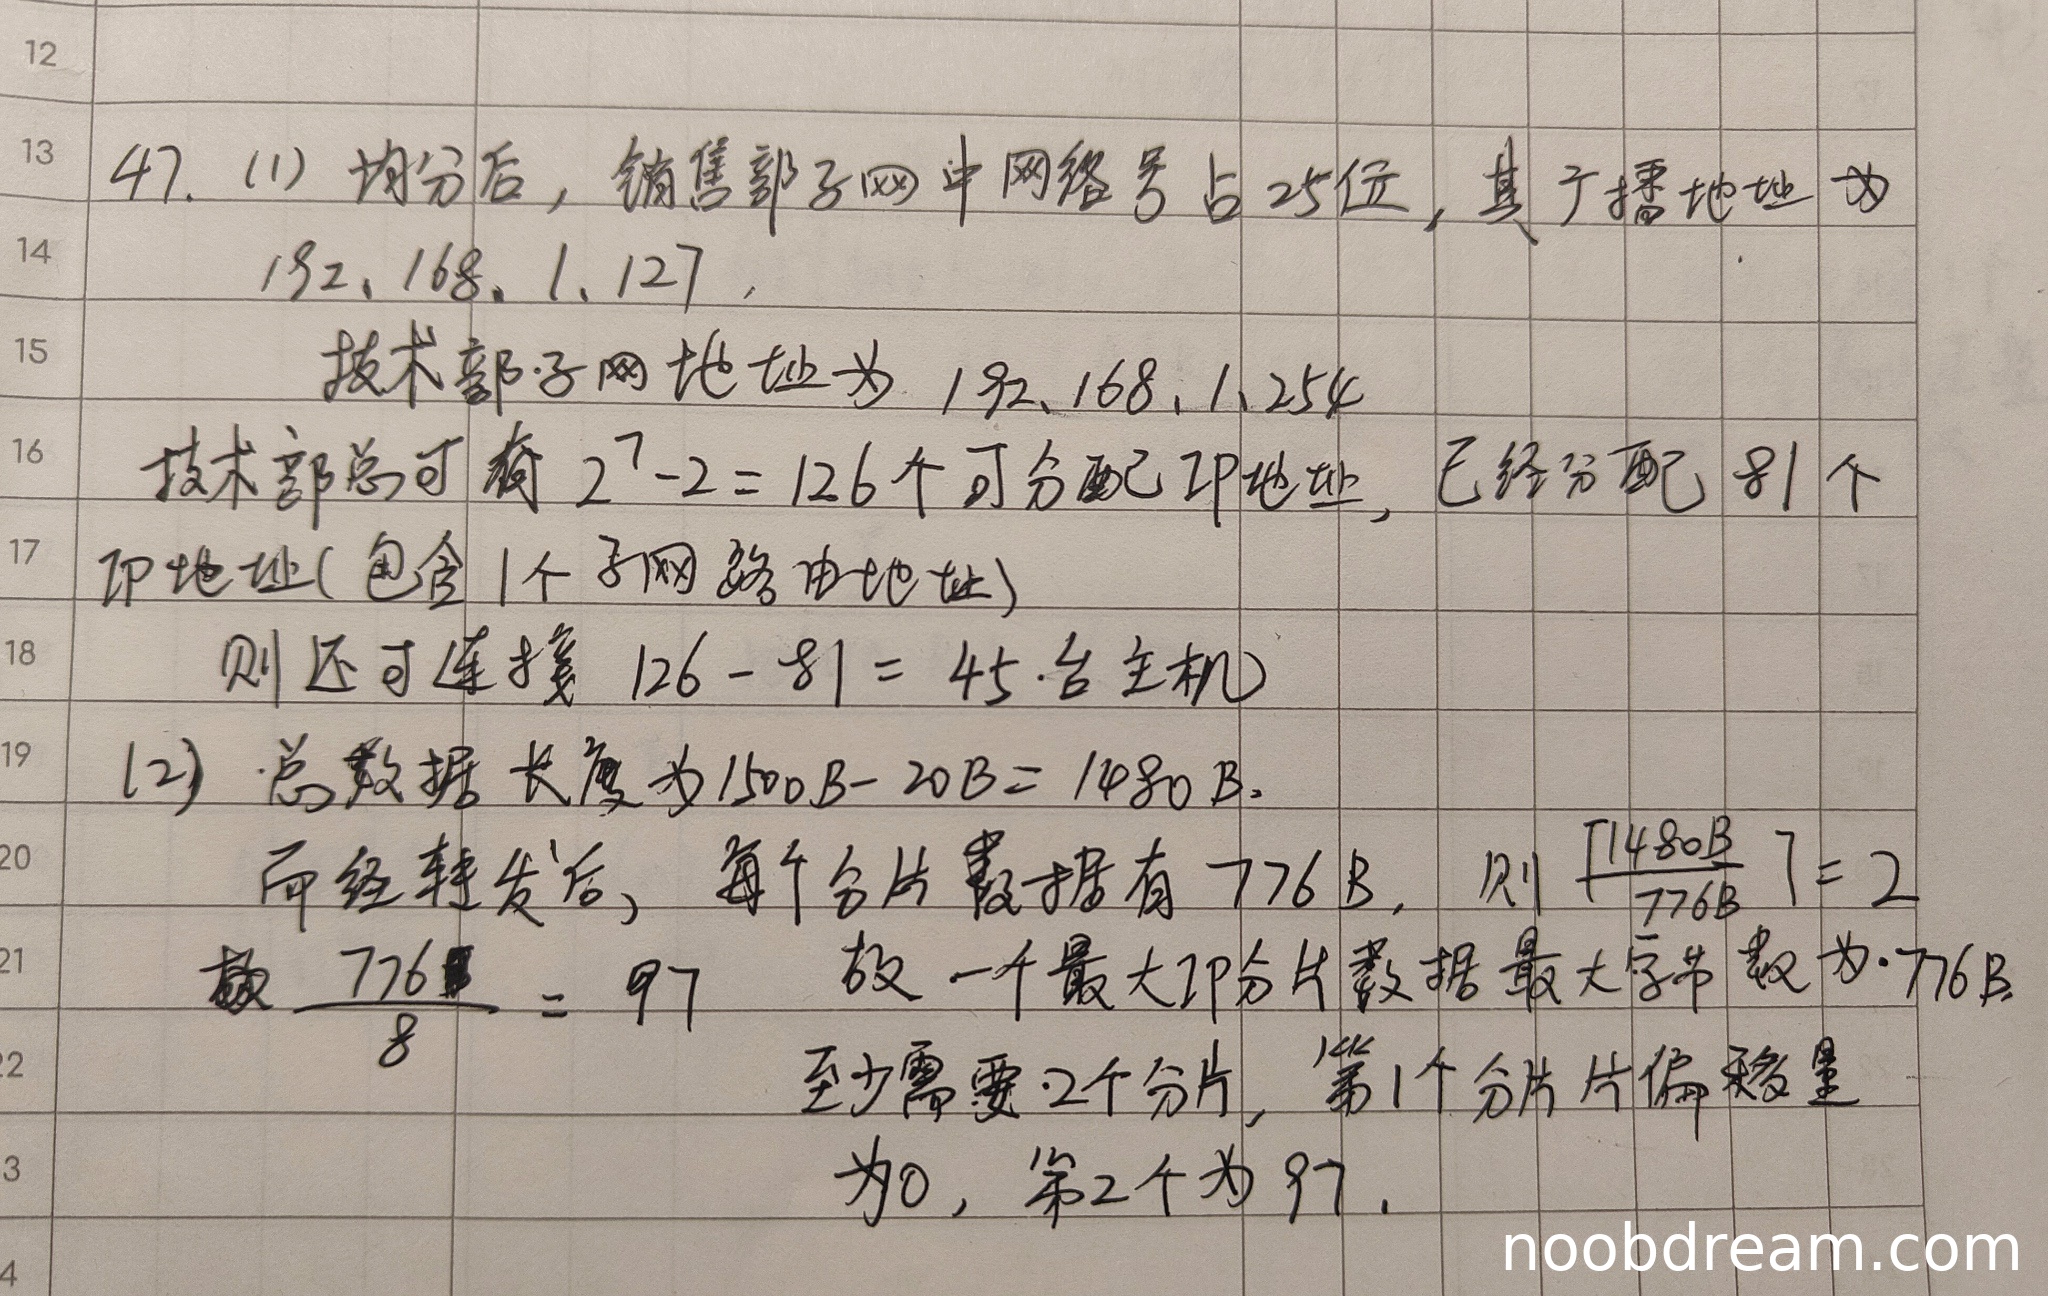 12
13 47. (1) 均分后，销售部子网中网络号占25位，其广播地址为
14 192、168、1、127，
15 技术部子网地址为 192、168、1、254
16 技术部总可有 2⁷-2=126个可分配IP地址，已经分配 81个
17 IP地址(包含1个子网路由地址)
18 则还可连接 126-81=45.台主机
19 (2) 总数据长度为1500B-20B=1480B.
20 而经转发后，每个分片数据有776B. 则⌈1480B/776B⌉=2
21 故 776/8 = 97 故一个最大IP分片数据最大字节数为.776B.
22 至少需要.2个分片，第1个分片片偏移量
3 为0，第2个为97.
4
noobdream.com